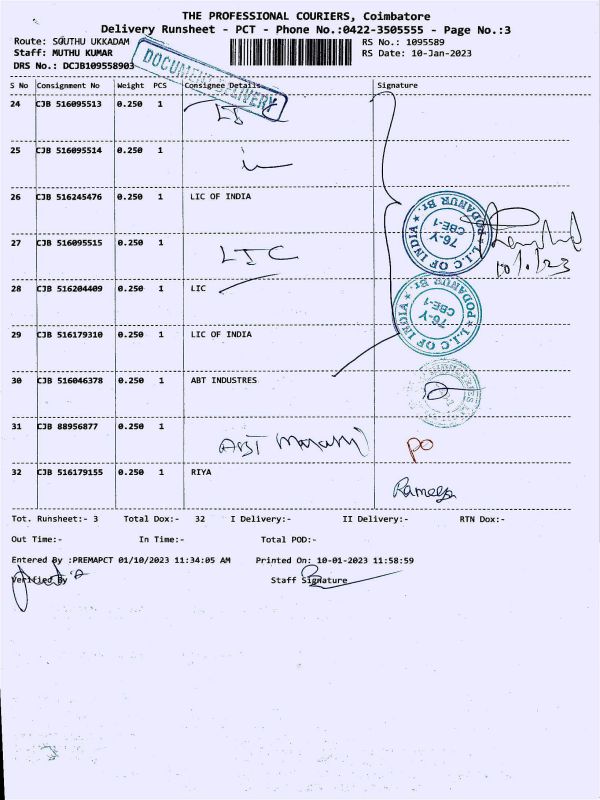 THE PROFESSIONAL COURIERS, Coimbatore
Delivery Runsheet - PCT - Phone No.:0422-3505555 - Page No.:3
Route: SOUTHU UKKADAM
RS No.: 1095589
Staff: MUTHU KUMAR
RS Date: 10-Jan-2023
DRS No.: DCJB109558903
DOCUMENT DELIVERY
S No Consignment No Weight PCS Consignee Details Signature
24 CJB 516095513 0.250 1 LIC
25 CJB 516095514 0.250 1
26 CJB 516245476 0.250 1 LIC OF INDIA
27 CJB 516095515 0.250 1 LIC
28 CJB 516204409 0.250 1 LIC
29 CJB 516179310 0.250 1 LIC OF INDIA
30 CJB 516046378 0.250 1 ABT INDUSTRES
31 CJB 88956877 0.250 1 ABT Maruthi
32 CJB 516179155 0.250 1 RIYA
L.I.C OF INDIA PODANUR Br.
76-Y
CBE-1
10/1/23
L.I.C OF INDIA PODANUR Br.
76-Y
CBE-1
PO
Rameeja
Tot. Runsheet:- 3 Total Dox:- 32 I Delivery:- II Delivery:- RTN Dox:-
Out Time:- In Time:- Total POD:-
Entered By :PREMAPCT 01/10/2023 11:34:05 AM Printed On: 10-01-2023 11:58:59
Verified By
Staff Signature